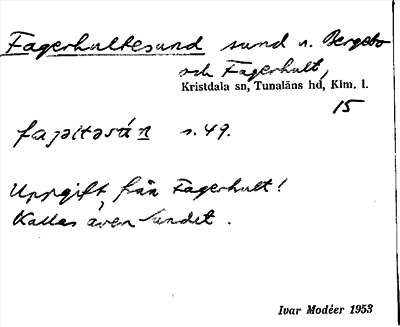 Fagerhultesund sund n. Bergebo
och Fagerhult,
Kristdala sn, Tunaläns hd, Kim. l.
15
s. 49.
Uppgift från Fagerhult!
Kallas även Sundet.
Ivar Modéer 1953